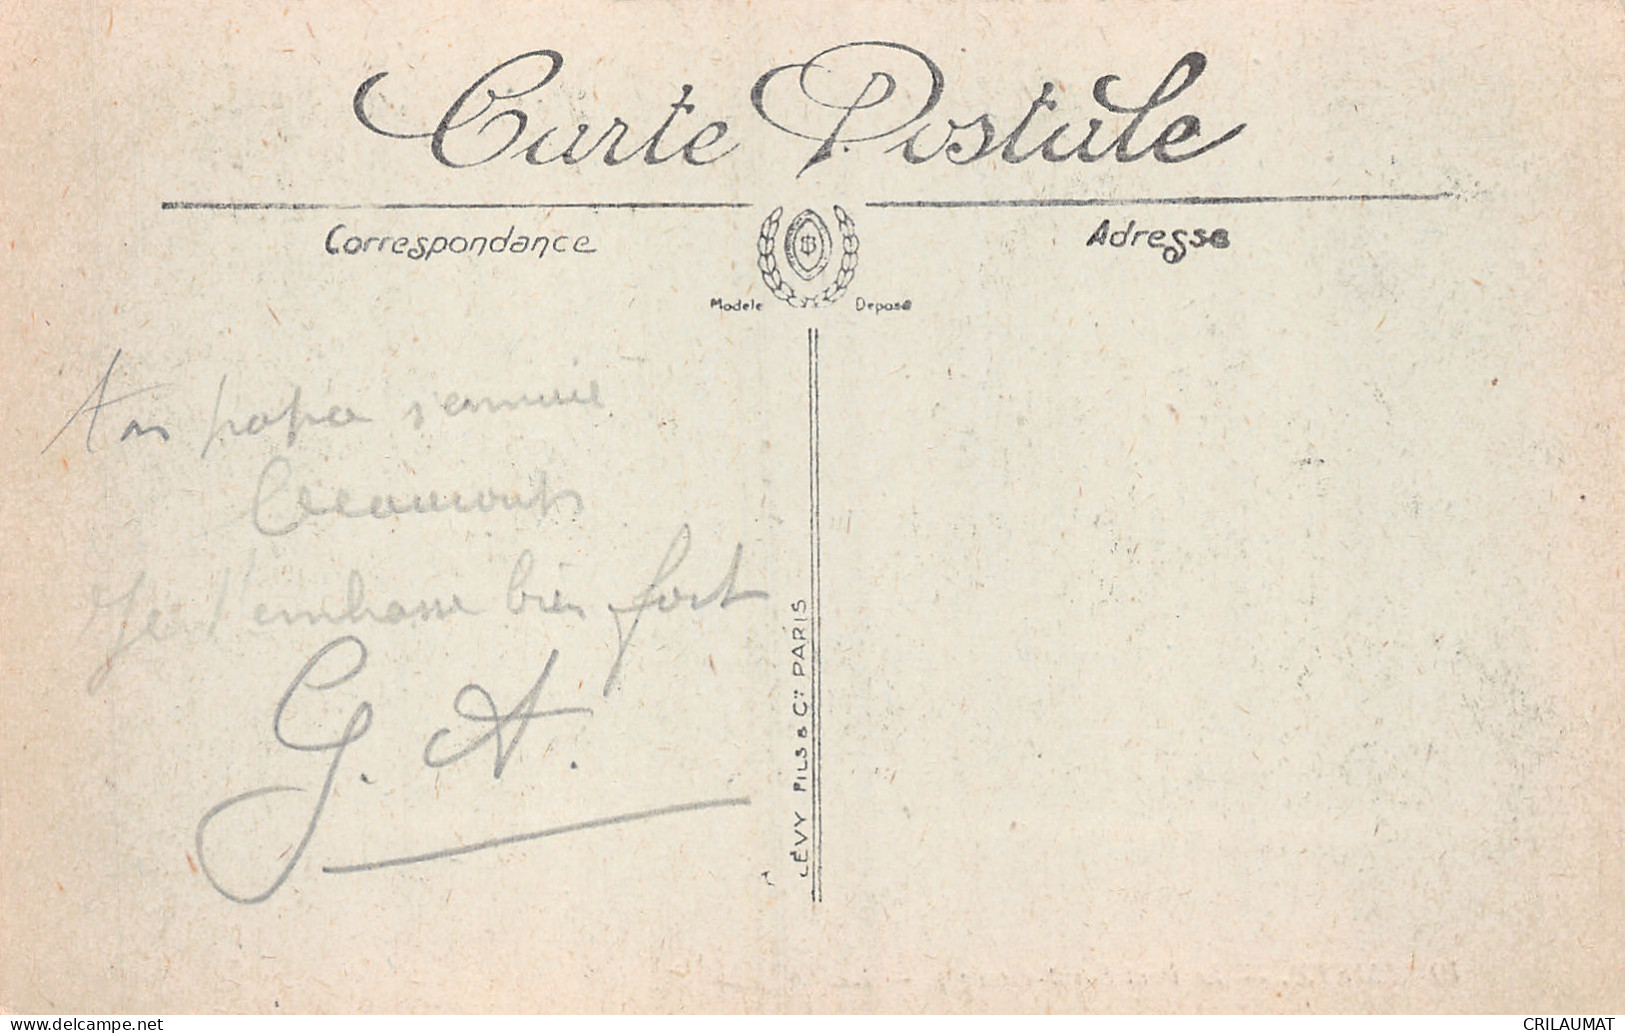 Carte Postale
Correspondance
Adresse
Modèle Déposé
ton papa s'ennuie
beaucoup
Je t'embrasse bien fort
G. A.
LÉVY FILS & Cie PARIS
delcampe.net
CRILAUMAT